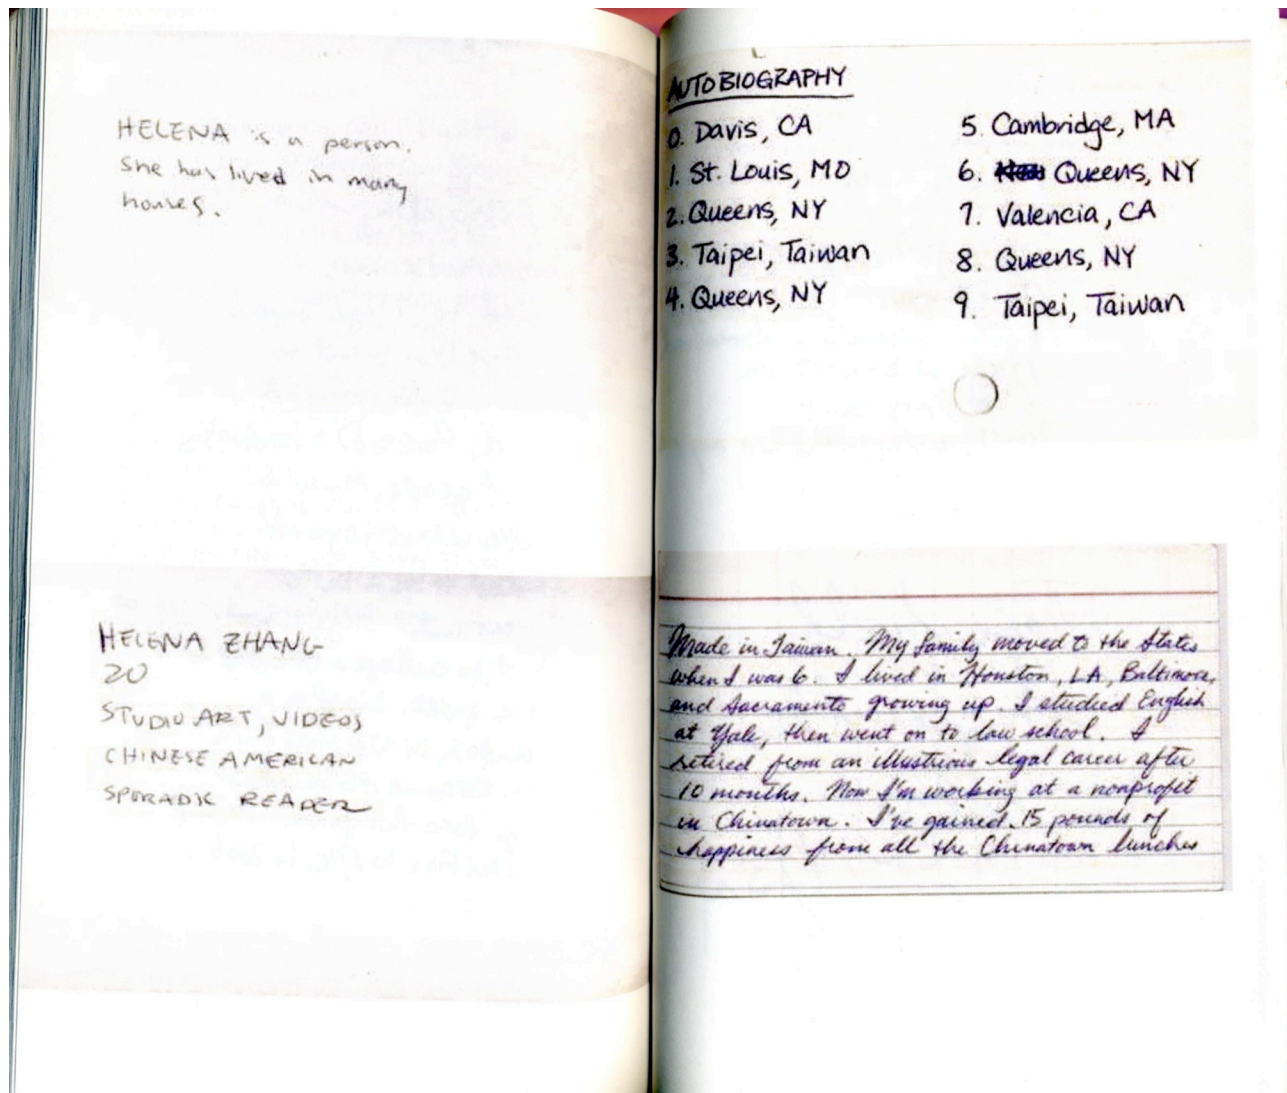 HELENA is a person.
She has lived in many
houses.
HELENA ZHANG
20
STUDIO ART, VIDEOS
CHINESE AMERICAN
SPORADIC READER
AUTOBIOGRAPHY
0. Davis, CA
1. St. Louis, MO
2. Queens, NY
3. Taipei, Taiwan
4. Queens, NY
5. Cambridge, MA
6. Queens, NY
7. Valencia, CA
8. Queens, NY
9. Taipei, Taiwan
Made in Taiwan. My family moved to the States
when I was 6. I lived in Houston, LA, Baltimore,
and Sacramento growing up. I studied English
at Yale, then went on to law school. I
retired from an illustrious legal career after
10 months. Now I'm working at a nonprofit
in Chinatown. I've gained 15 pounds of
happiness from all the Chinatown lunches